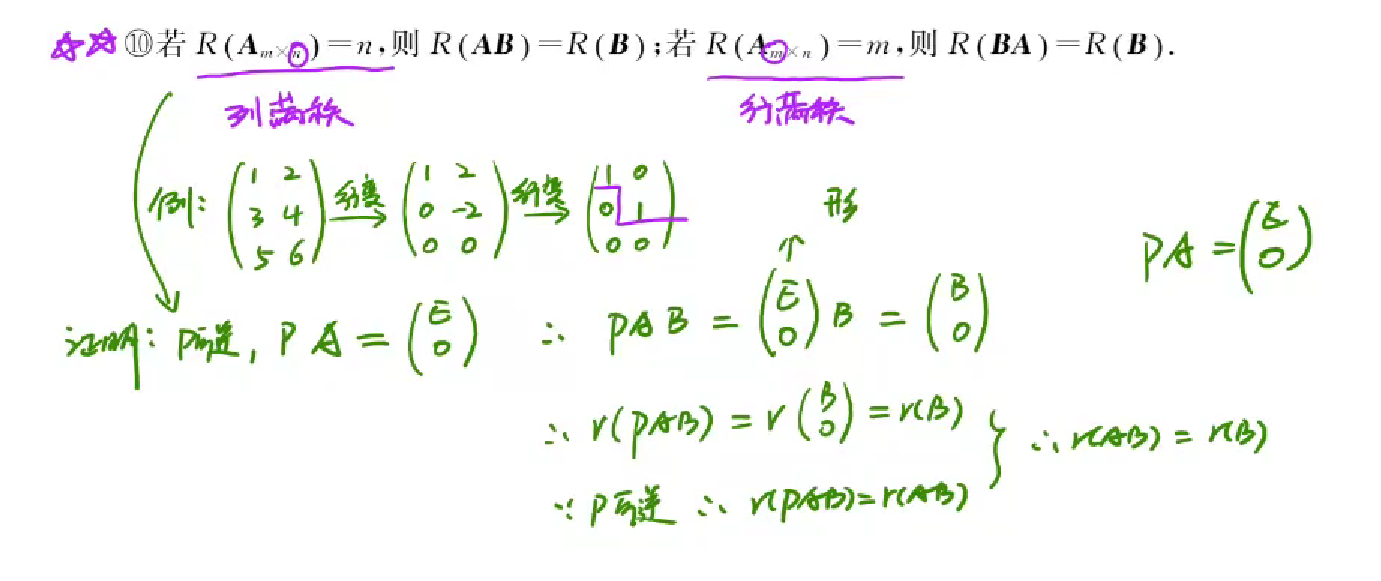 ☆☆ ⑩若 R(A_{m×n})=n,则 R(AB)=R(B);若 R(A_{m×n})=m,则 R(BA)=R(B).
列满秩 行满秩
例: (1 2; 3 4; 5 6) 行变→ (1 2; 0 -2; 0 0) 行变→ (1 0; 0 1; 0 0) 形 PA=(E; 0)
证明: P可逆, PA=(E; 0) ∴ PAB=(E; 0)B=(B; 0)
∴ r(PAB)=r(B; 0)=r(B)
∴ r(AB)=r(B)
∵ P可逆 ∴ r(PAB)=r(AB)